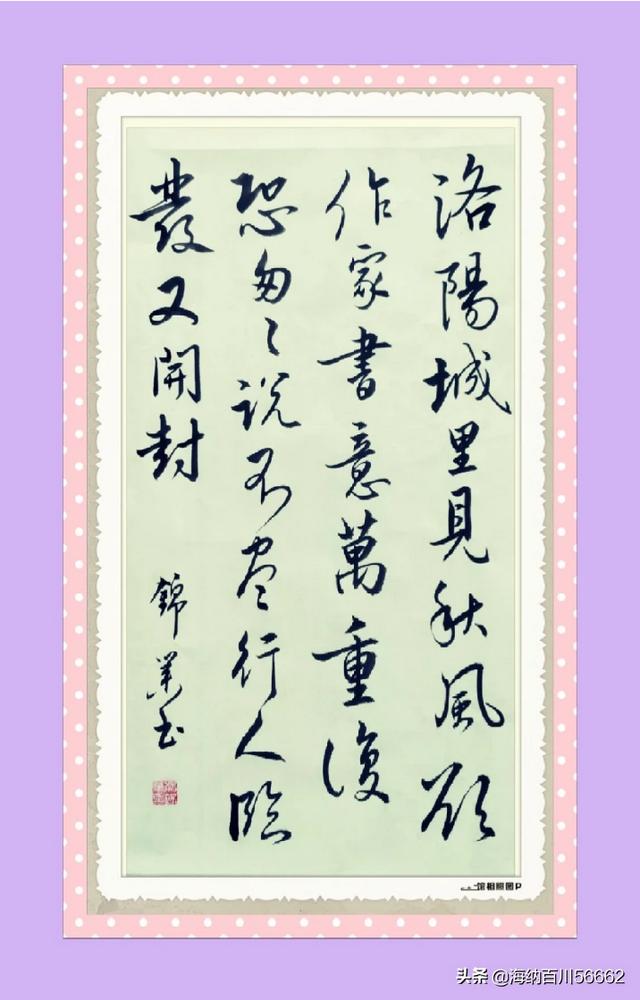 洛陽城里見秋風欲
作家書意萬重復
恐匆々说不尽行人臨
發又開封
錦業书
头条 @海纳百川56662